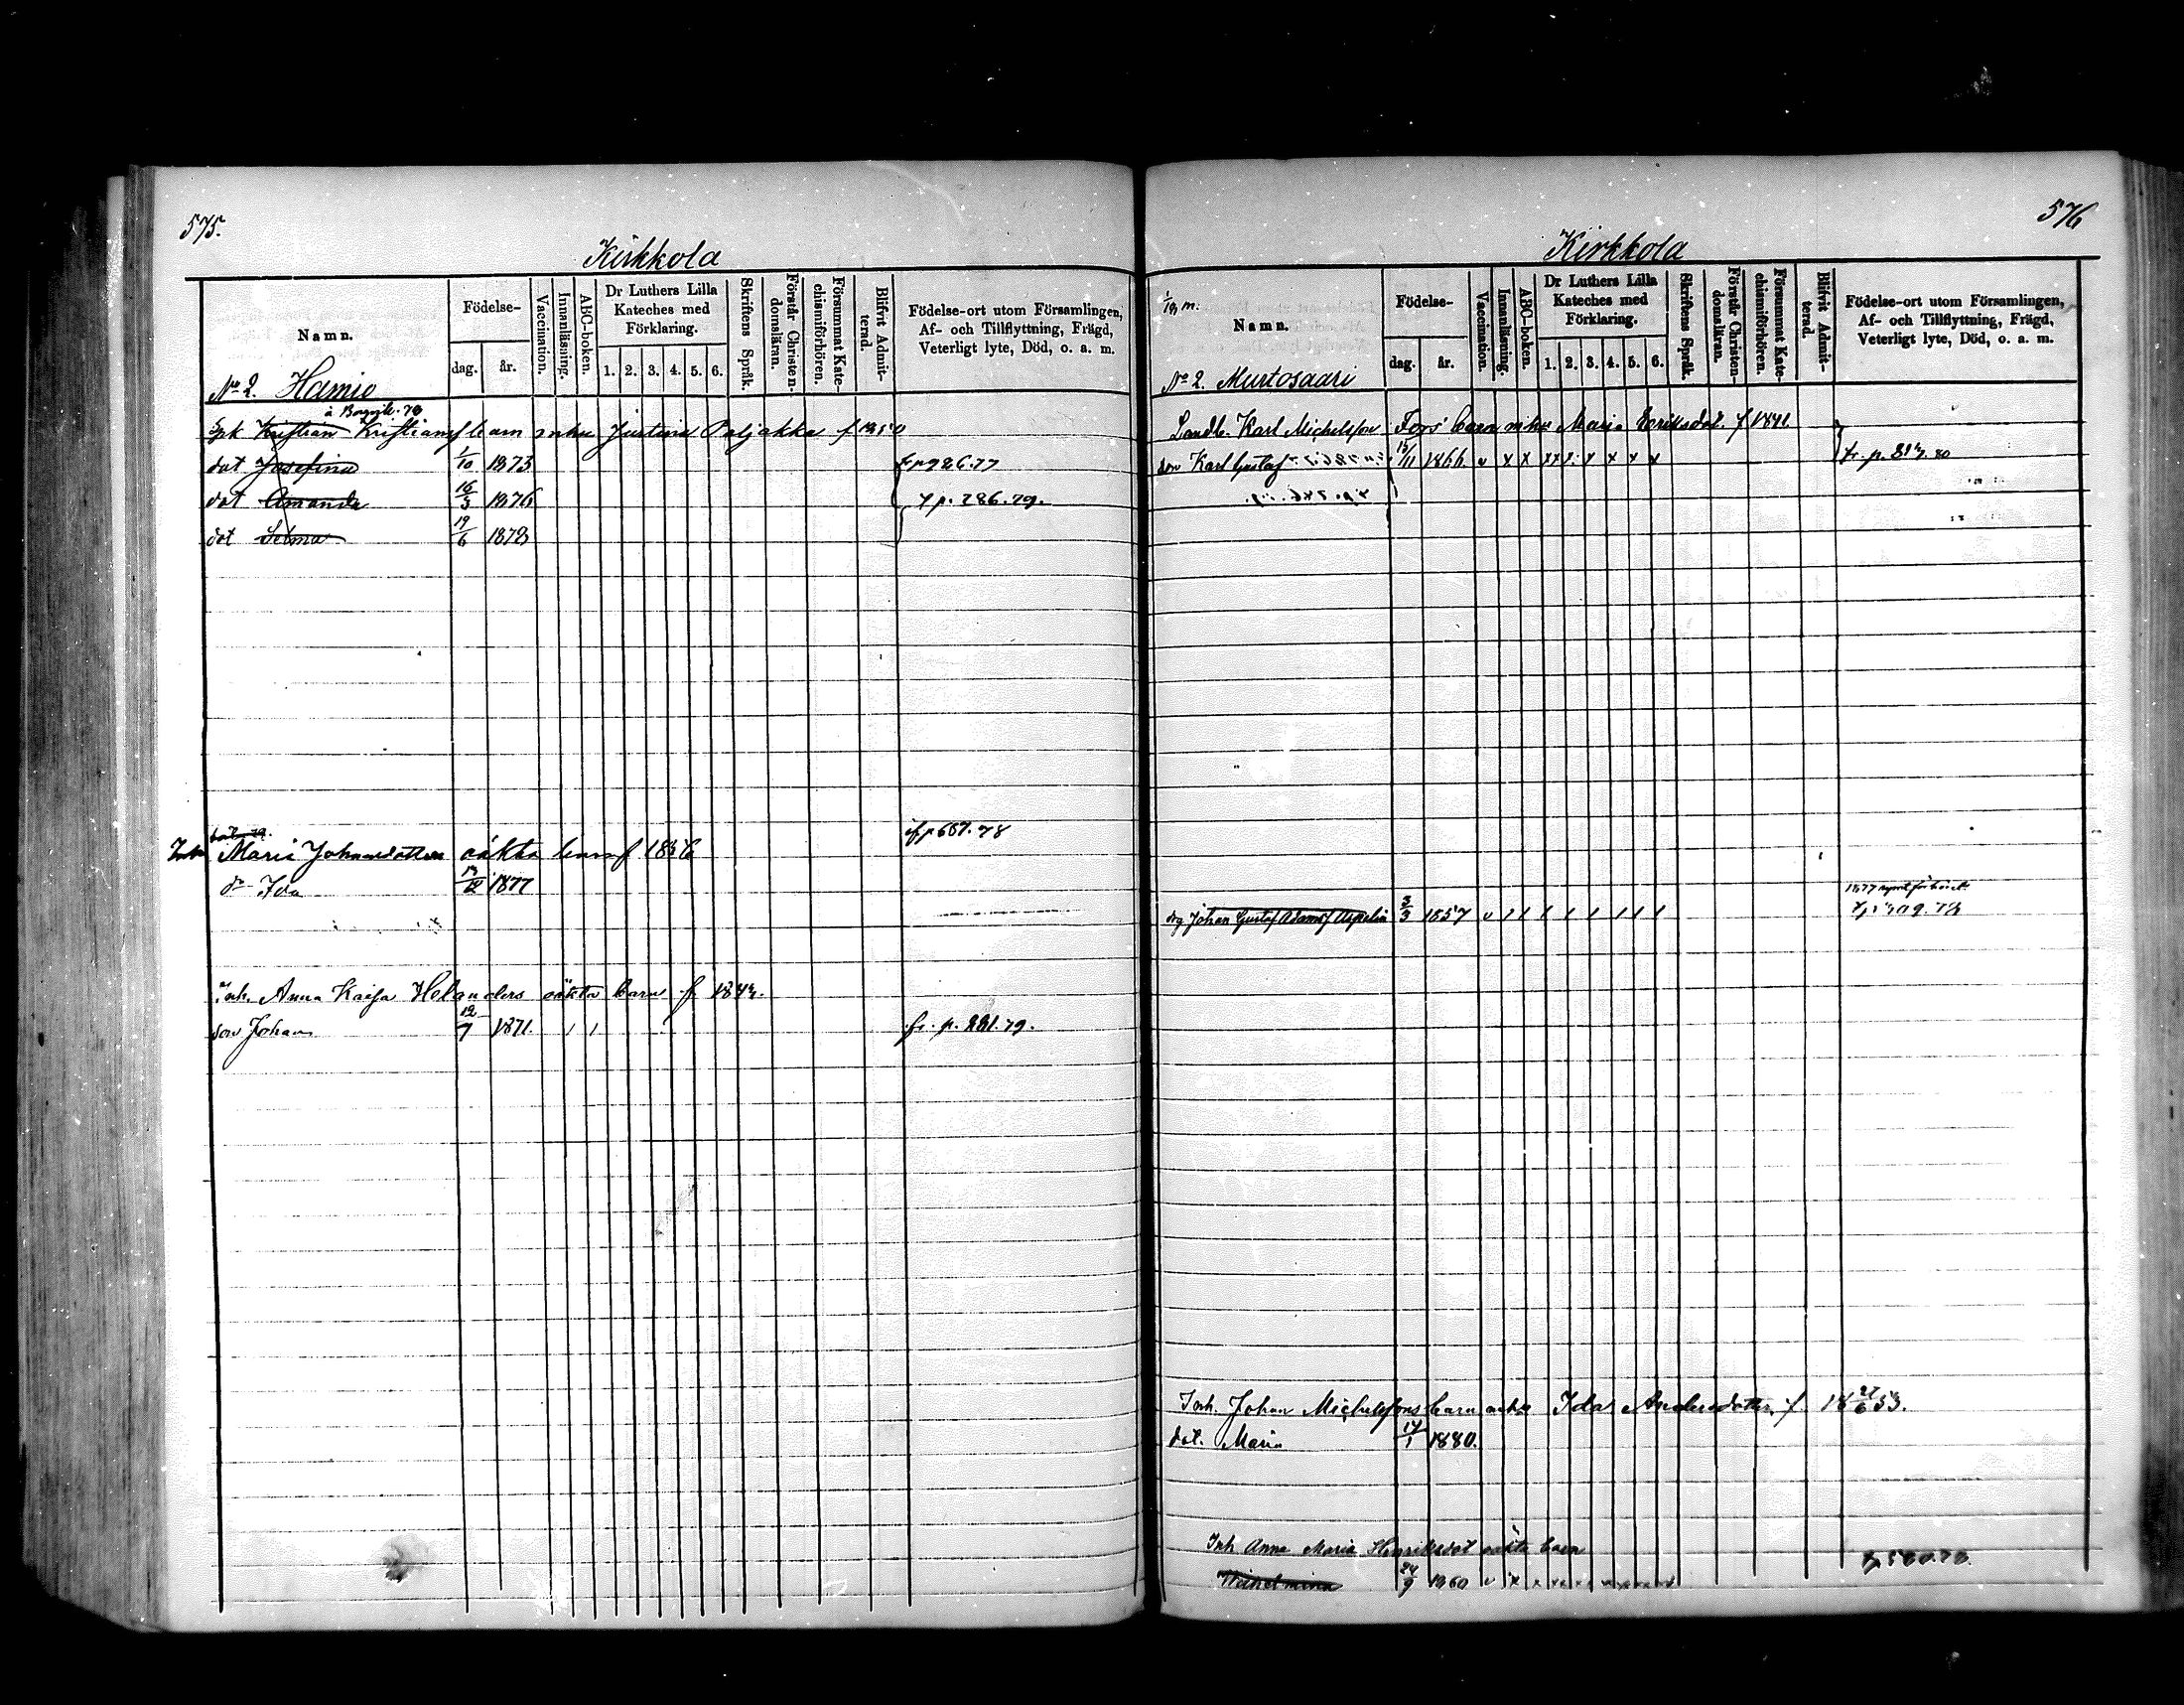 575.
Kirkkola
Namn.
Födelse-
dag.
år.
Vaccination.
Innanläsning.
ABC-boken.
Dr Luthers Lilla
Kateches med
Förklaring.
1. 2. 3. 4. 5. 6.
Skriftens Språk.
Förstår Christen-
domsläran.
Försummat Kate-
chismiförhören.
Blifvit Admit-
terad.
Födelse-ort utom Församlingen,
Af- och Tillflyttning, Frägd,
Veterligt lyte, Död, o. a. m.
No 2. Hamio
Kristian Kristiansf barn mhu Justina Paljakka f
dot Josefina 1/10 1873
dot Amanda 16/3 1876 p. 286. 79.
dot Selma 19/6 1872
p 667. 78
Maria Johansdotters oäkta barn f 1856
dr Ida 1877
Inh. Anna Kaisa Helanders oäkta barn f
son Johan 12/7 1871. 1 1 fr. p. 221. 79.
576
Kirkkola
Namn.
Födelse-
dag.
år.
Vaccination.
Innanläsning.
ABC-boken.
Dr Luthers Lilla
Kateches med
Förklaring.
1. 2. 3. 4. 5. 6.
Skriftens Språk.
Förstår Christen-
domsläran.
Försummat Kate-
chismiförhören.
Blifvit Admit-
terad.
Födelse-ort utom Församlingen,
Af- och Tillflyttning, Frägd,
Veterligt lyte, Död, o. a. m.
1/10 m.
No 2. Murtosaari
Landb. Karl Michelsson Fors' barn mhu Maria Eriksdot. f 1841.
son Karl Gustaf 1866. v x x x x x x x x fr. p. 80
drg Johan Gustaf Adamsf Aspelin 3/3 1857 v 1 1 1 1 1 1 1 1
Inh. Johan Michelssons barn mhu Ida Andersdotter, f. 18 27/6 53.
dot. Maria 17/1 1880.
Inh Anna Maria Henriksdot oäkta barn
Wilhelmina 24/9 1860 v x x x x x x x x